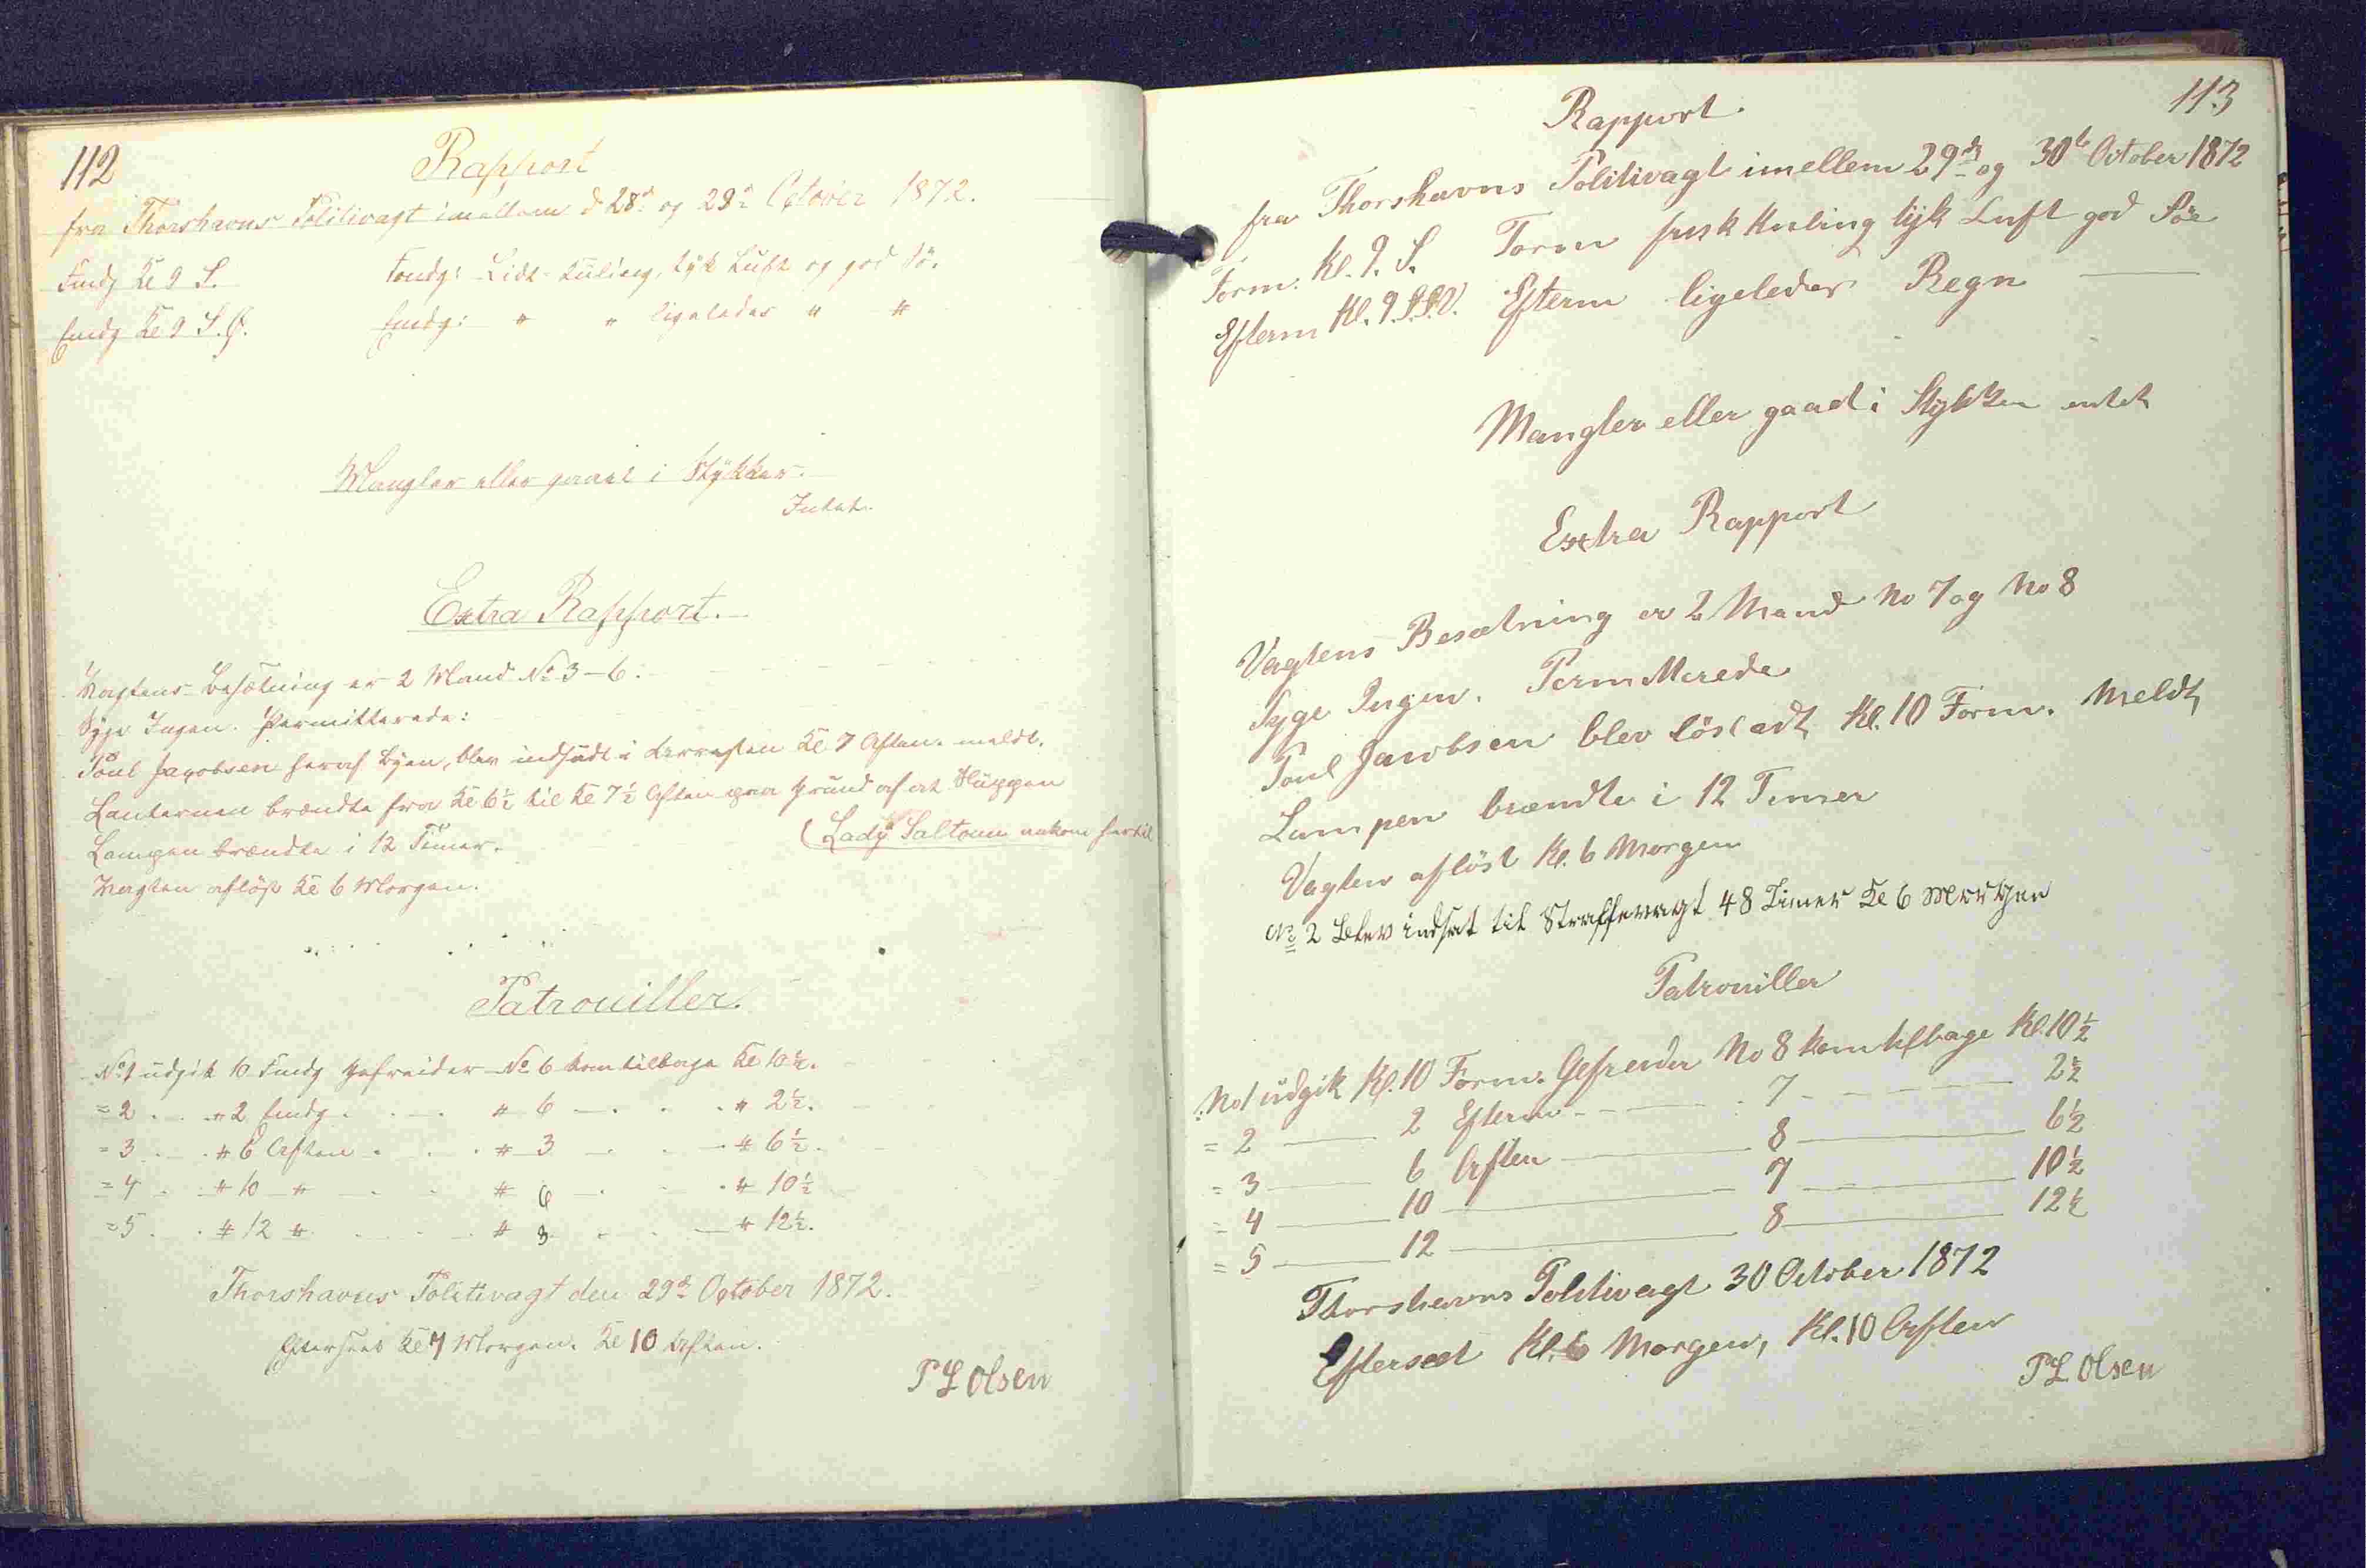 112
Rapport
fra Thorshavns Politivagt imellem d 28d og 29d October 1872.
Fmdg Kl 9 S. Fomdg: Lidt Kuling, tyk Luft og god Sö.
Emdg Kl 9 S.Ø. Emdg: " " ligeledes " "
Mangler eller gaaet i Stykker.
Intet.
Extra Rapport.
Vagtens Besætning er 2 Mand No 3-6.
Syge Ingen. Permitterede:
Poul Jacobsen heraf Byen, blev indsadt i Arresten Kl 7 Aften. meldt.
Lanternen brændte fra Kl 6½ til Kl 7½ Aften paa Grund af at Sluppen
(Lady Saltoun ankom hertil
Lampen brændte i 12 Timer.
Vagten aflöst Kl 6 Morgen.
Patrouiller.
No 1 udgik 10 Fmdg Gefreider No 6 kom tilbage Kl 10½.
= 2 " 2 Emdg. " 6 " 2½.
= 3 " 6 Aften " 3 " 6½.
= 4 " 10 " " 6 " 10½
= 5 " 12 " " 3 " 12½.
Thorshavns Politivagt den 29d October 1872.
Efterseet Kl 7 Morgen. Kl 10 Aften.
P L Olsen
113
Rapport
fra Thorshavns Politivagt imellem 29d og 30te October 1872
Form. Kl. 9. S. Form frisk Kuling tyk Luft god Söe
Efterm Kl. 9 S.S.V. Efterm ligeledes Regn
Mangler eller gaaed i Stykker intet
Extra Rapport
Vagtens Besætning er 2 Mand No 7 og No 8
Syge Ingen. PermMerede
Poul Jacobsen blev lösladt Kl. 10 Form. Meldt
Lampen brændte i 12 Timer
Vagten aflöst Kl. 6 Morgen
No 2 Blev indsat til Straffevagt 48 Timer Kl 6 Morgen
Patrouiller
No 1 udgik Kl. 10 Form. Gefreider No 8 kom tilbage Kl. 10½
= 2 2 Efterm 7 2½
= 3 6 Aften 8 6½
= 4 10 7 10½
= 5 12 8 12½
Thorshavns Politivagt 30 October 1872
Efterseet Kl. 6 Morgen, Kl. 10 Aften
P L Olsen